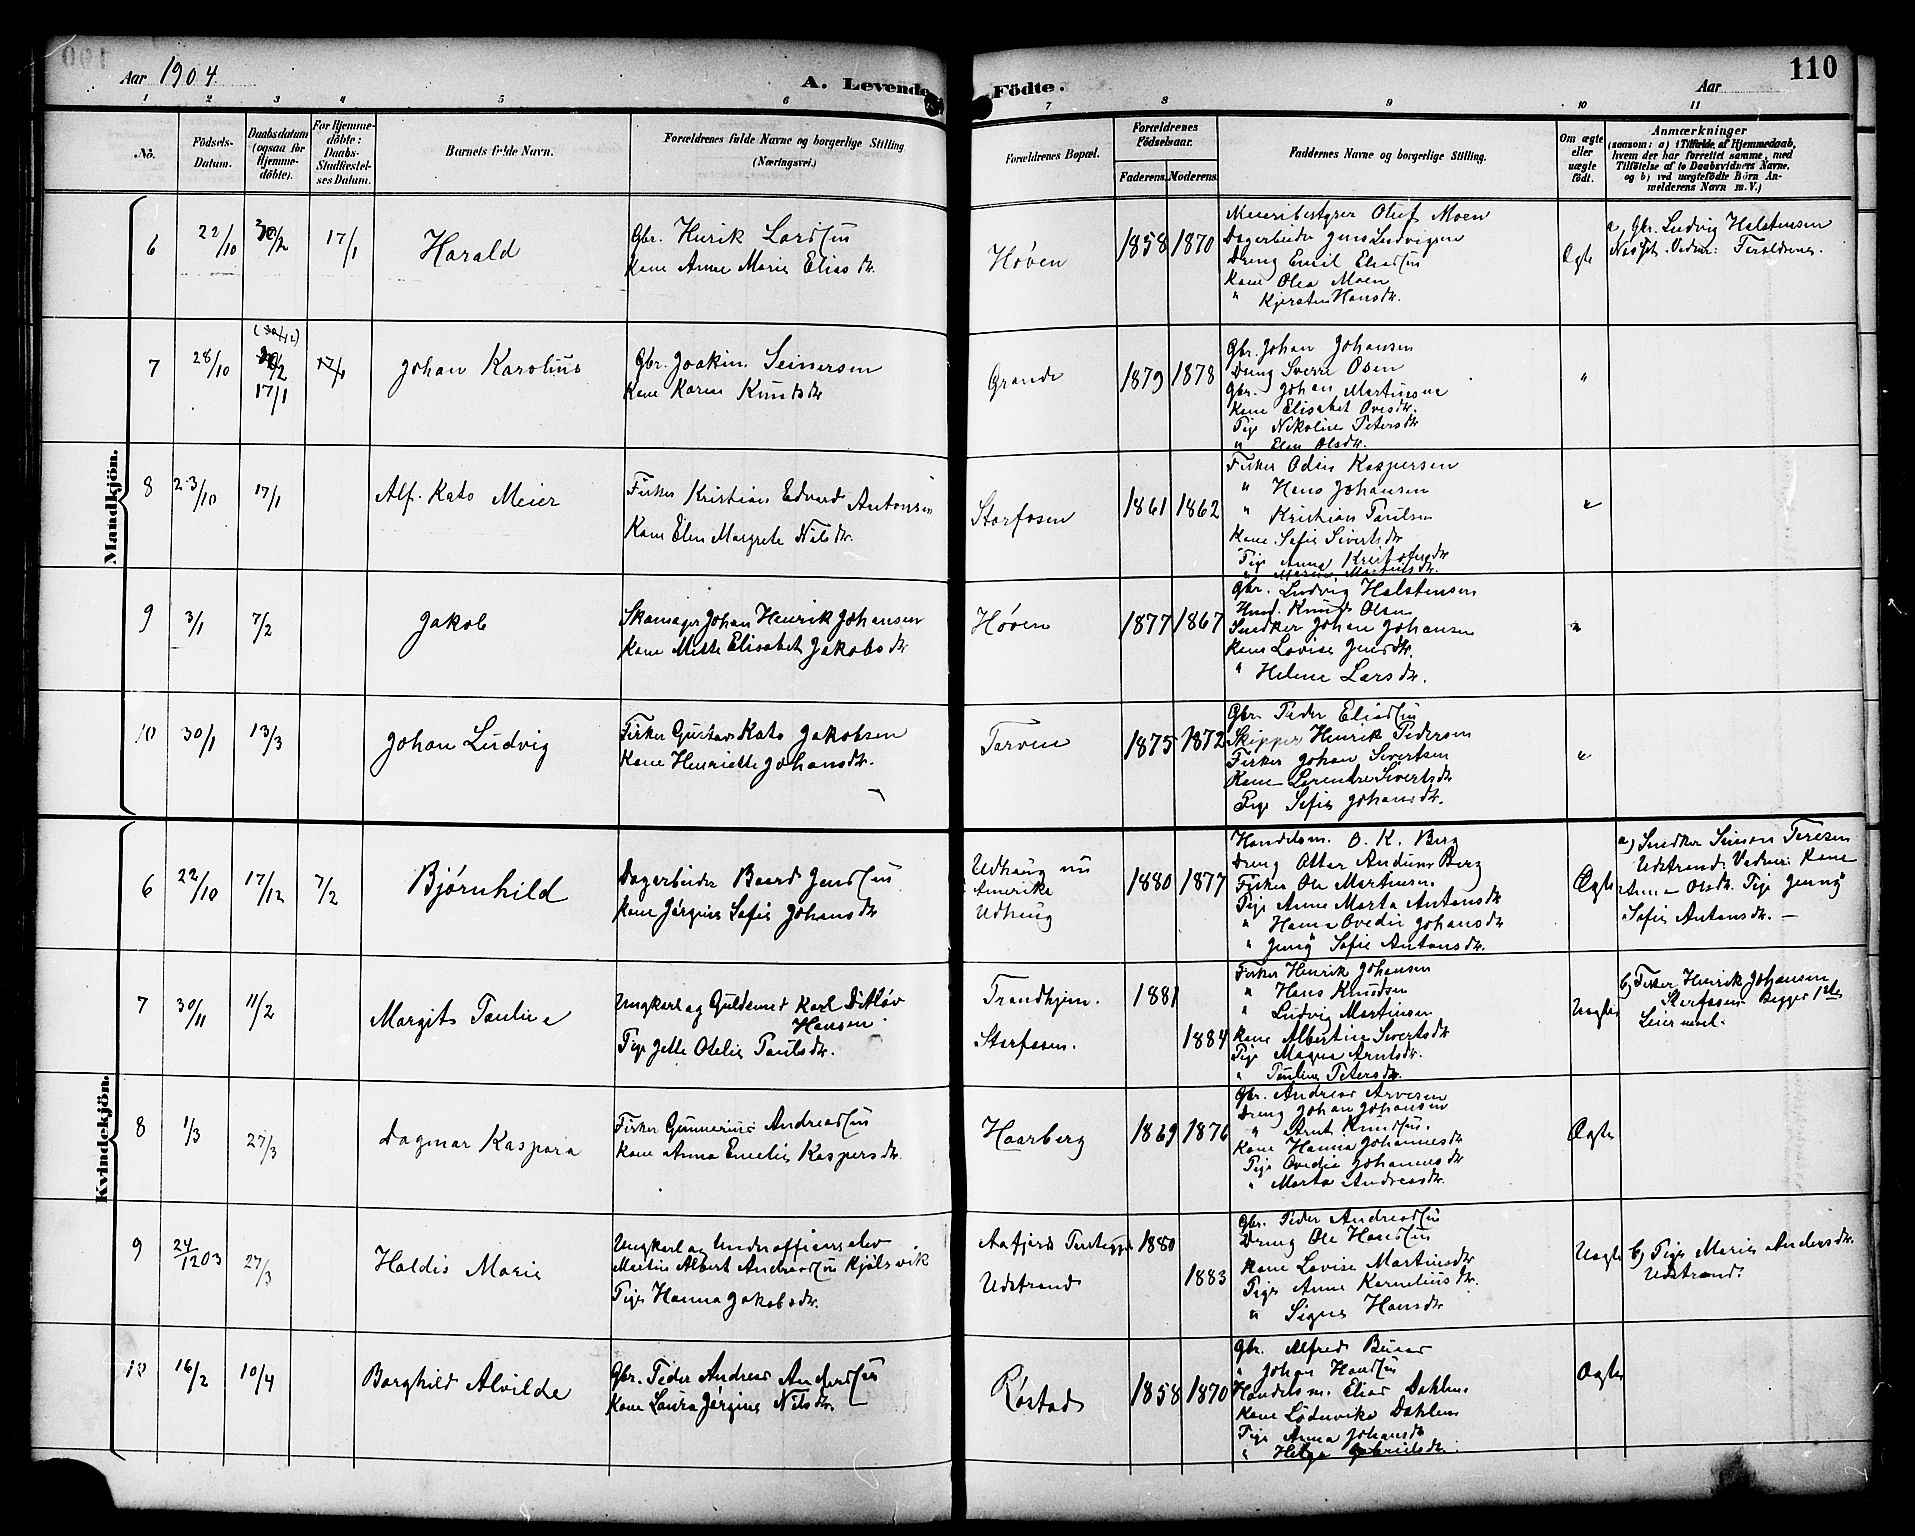 Aar 1904.
A. Levende Födte.
Aar
110
1 2 3 4 5 6 7 8 9 10 11
No.
Födsels-Datum.
Daabsdatum (ogsaa för Hjemme-döbte).
For Hjemme-döbte: Daabs-Stadfæstel-ses Datum.
Barnets fulde Navn.
Forældrenes fulde Navne og borgerlige Stilling (Næringsvei.)
Forældrenes Bopæl.
Forældrenes Födselsaar.
Faderens. Moderens.
Faddernes Navne og borgerlige Stilling.
Om ægte eller uægte födt.
Anmærkninger
(saasom: a) i Tilfælde af Hjemmedaab, hvem der har forrettet samme, med Tilföielse af to Daabsvidners Navne, og b) ved uægtefödte Börn An-melderens Navn m. V.)
Mandkjön.
6 22/10 17/1
Harald
Gbr. Henrik Lordsen
Kone Anne Marie Eliasdtr.
Høven
1858 1870
Meieribestyrer Oluf Moen
Dagarbeider Jens Ludvigsen
Dreng Emil Eliassen
Kone Olea Moen
" Kjersten Hansdtr.
Ægte
a, Gbr. Ludvig Halstensen
7 28/10 (30/12) 17/1
Johan Karolius
Gbr. Joakim Seinersen
Kone Karen Knutsdtr
Grande
1879 1878
Gbr. Johan Johansen
Dreng Sverre Osen
Gbr. Johan Martinsen
Kone Elisabet Ovesdtr.
Pige Nikoline Petersdtr
" Elen Olsdtr.
"
8 23/10 17/1
Alf Kato Meier
Fisker Kristian Edvard Antonsen
Kone Elen Margrete Nilsdtr.
Storfosen
1861 1862
Fisker Odin Kaspersen
" Hans Johansen
" Kristian Paulsen
Kone Sofie Sivertsdtr
Pige Anna Kristofersdtr
" Maren Martinsdtr.
"
9 3/1 7/2
Jakob
Skomager Johan Henrik Johansen
Kone Mette Elisabet Jakobsdtr
Høven
1877 1867
Gbr. Ludvig Halstensen
Husm. Knut Olsen
Snedker Johan Johansen
Kone Lovise Jensdtr.
" Helene Larsdtr.
"
10 30/1 13/3
Johan Ludvig
Fisker Gustav Kato Jakobsen
Kone Henriette Johansdtr.
Tarven
1875 1872
Gbr. Peder Eliassen
Skipper Henrik Pedersen
Fisker Johan Sivertsen
Kone Lorentse Sivertsdtr
Pige Sofie Johansdtr.
"
Kvindekjön.
6 22/10 17/12 7/2
Bjørnhild
Dagarbeider Baard Jenssen
Kone Jørgine Sofie Johansdtr
Udhaug nu Amerika
Udhaug
1880 1877
Handelsm. O. K. Berg
Dreng Otter Andreas Berg
Fisker Ole Martinsen
Pige Anne Marta Antonsdtr
" Hanna Ovedie Johansdtr
" Jenny Sofie Antonsdtr.
Ægte
a, Snedker Simon Teresen
Udstrand. Vidner: Kone
Anne Olsdtr. Pige Jenny
Sofie Antonsdtr. –
7 30/11 11/2
Margit Pauline
Ungkarl og Guldsmed Karl Ditløv Hansen
Pige Jette Otelie Paulsdtr.
Trondhjem.
Storfosen.
1881
1884
Fisker Henrik Johansen
" Hans Knudsen
" Ludvig Martinsen
Kone Albertine Sivertsdtr.
Pige Magna Arntsdtr.
" Pauline Petersdtr.
Uægte
b, Fisker Henrik Johansen
Storfosen. Begges 1ste
Leiermaal.
8 1/3 27/3
Dagmar Kaspara
Fisker Gunnerius Andreassen
Kone Anna Emelie Kaspersdtr.
Haarberg
1869 1876
Gbr. Andreas Arvesen
Dreng Johan Johansen
" Arnt Knudsen.
Kone Hanna Johannesdtr
Pige Ovedie Johannesdtr
" Marta Andreasdtr.
Ægte
9 24/12 03 27/3
Haldis Marie
Ungkarl og Underofficerselev
Martin Albert Andreassen Kjølsvik
Pige Hanna Jakobsdtr.
Udstrand
1880
1883
Gbr. Peder Andreassen
Dreng Ole Hanssen
Kone Lovise Martinsdtr
Pige Anne Korneliusdtr.
" Signe Hansdtr
Uægte
b, Pige Marie Andersdtr.
Udstrand.
10 16/2 10/4
Borghild Alvilde
Gbr. Peder Andreas Anderssen
Kone Laura Jørgine Nilsdtr.
Røstad
1858 1870
Gbr. Alfred
" Johan Hanssen
Handelsm. Elias Dahlen
Kone Lødevika Dahlen
Pige Anna Johansdtr
" Helga Gabrielsdtr.
Ægte